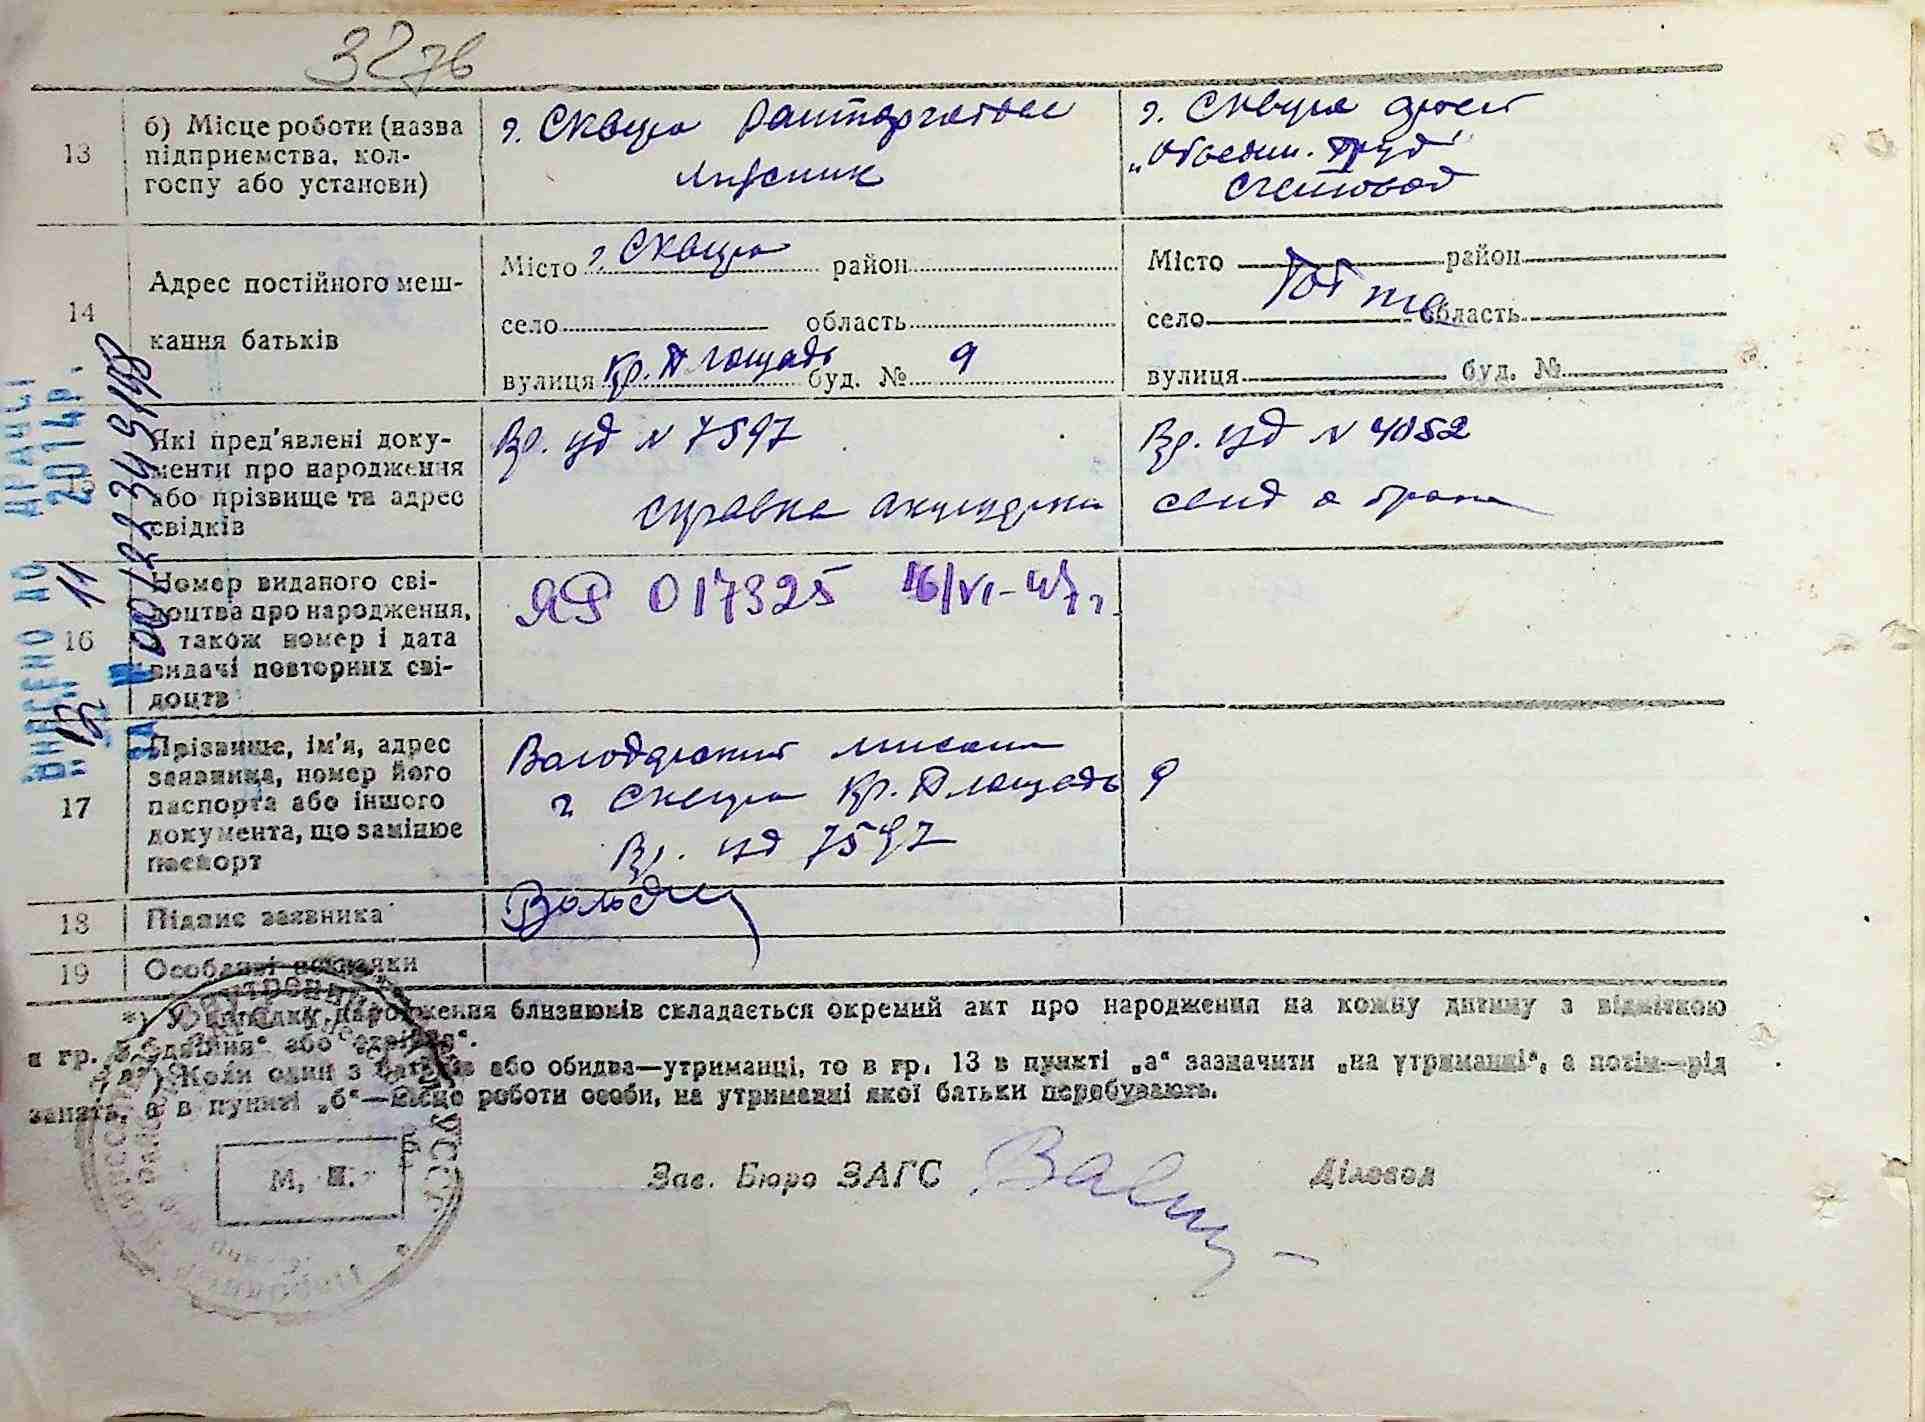 327б
13
б) Місце роботи (назва
підприємства, кол-
госпу або установи)
г. Сквира
г. Сквира
"Объедин. Труд"
счетовод
14
Адрес постійного меш-
кання батьків
Місто г. Сквира район
село область
вулиця Кр. Площадь буд. № 9
Місто район
село область
Тот же
вулиця буд. №
15
Які пред'явлені доку-
менти про народження
або прізвище та адрес
свідків
Вр. уд N 7597
справка акушерки
Вр. уд N 4052
свид о браке
16
Номер виданого сві-
доцтва про народження,
а також номер і дата
видачі повторних сві-
доцтв
ЯР 017325 16/VI-47 г.
17
Прізвище, ім'я, адрес
заявника, номер його
паспорта або іншого
документа, що замінює
паспорт
г Сквира Кр. Площадь 9
Вр. уд 7597
18
Підпис заявника
19
Особливі познаки
*) У випадку народження близнюків складається окремий акт про народження на кожну дитину з відміткою
в гр. 5 "двійня" або "трійня".
**) Коли один з батьків або обидва—утриманці, то в гр. 13 в пункті „а“ зазначити „на утриманні“, а потім—рід
занять, а в пункті „б“—місце роботи особи, на утриманні якої батьки перебувають.
М. П.
Зав. Бюро ЗАГС
Діловод
ВНЕСЕНО ДО ДРАЦСІ
12 11 2014р.
ЗА №